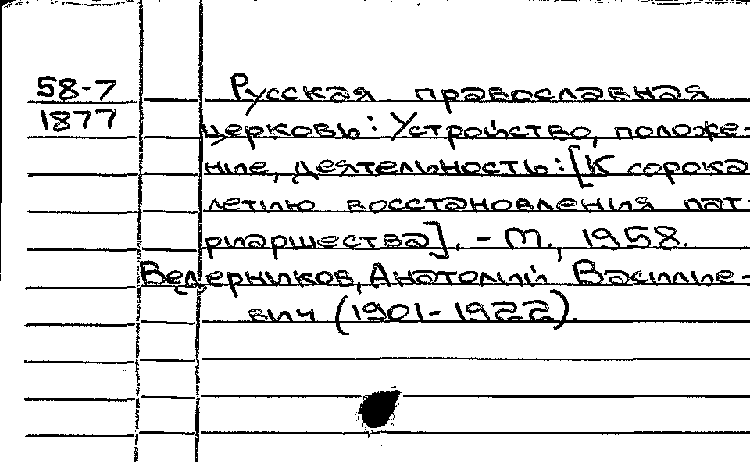 58-7
1877
Русская православная
церковь: Устройство, положе-
ние, деятельность: [К сорока-
летию восстановления пат-
риаршества]. - М., 1958.
Ведерников, Анатолий Василье-
вич (1901-1922).